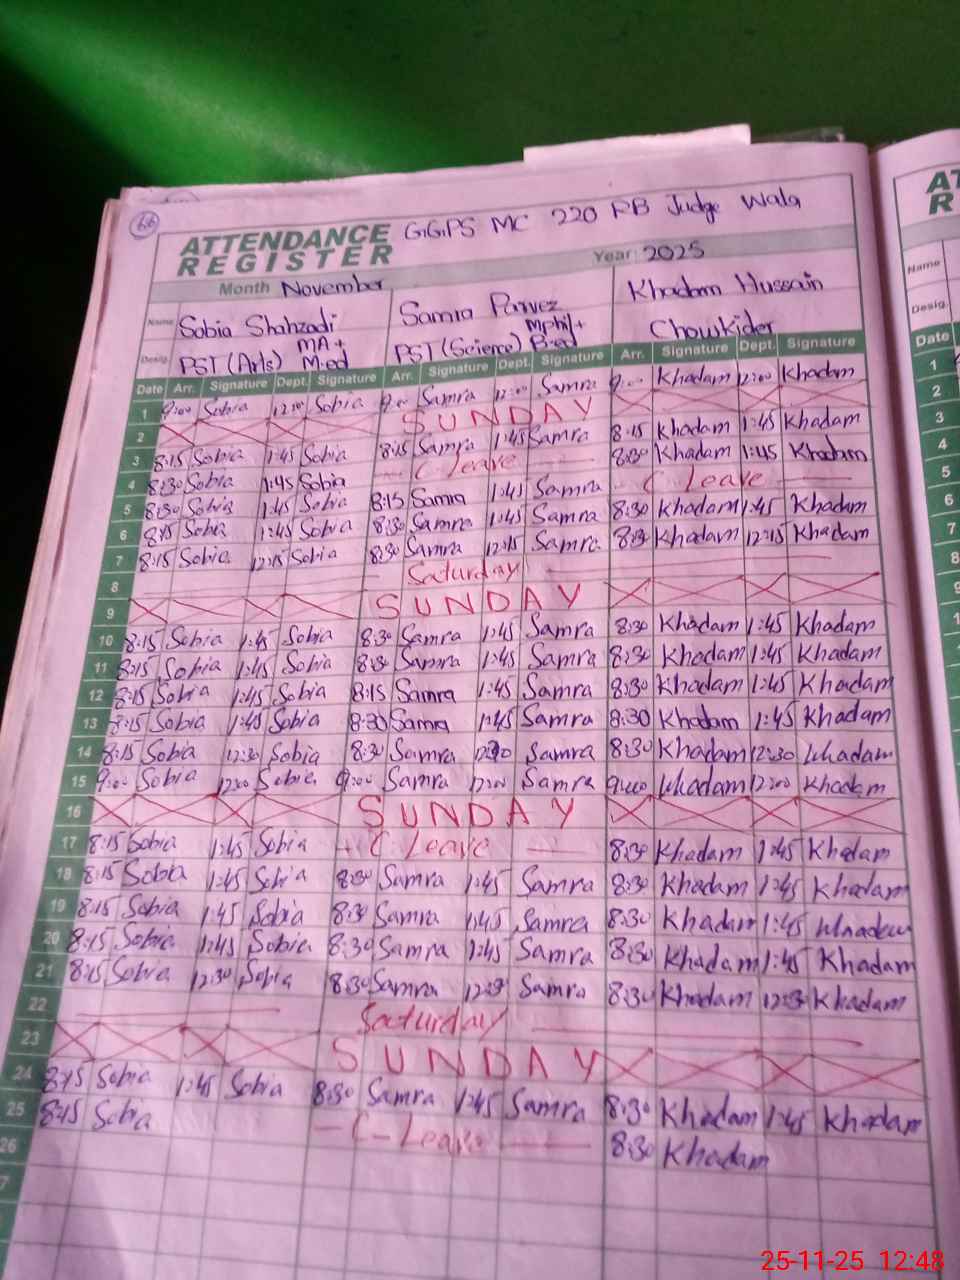 66
ATTENDANCE REGISTER G.G.P.S MC 220 RB Judge Wala
Month November Year: 2025
Name Sobia Shahzadi Samra Parvez Khadam Hussain
Desig. PST (Arts) MA + M.ed PST (Science) Mphil + B-ed Chowkider
Date Arr. Signature Dept. Signature Arr. Signature Dept. Signature Arr. Signature Dept. Signature
1 9:00 Sobia 12:00 Sobia 9:00 Samra 12:00 Samra 9:00 Khadam 12:00 Khadam
2 SUNDAY
3 8:15 Sobia 1:45 Sobia 8:15 Samra 1:45 Samra 8:15 Khadam 1:45 Khadam
4 8:30 Sobia 1:45 Sobia C. Leave 8:30 Khadam 1:45 Khadam
5 8:30 Sobia 1:45 Sobia 8:15 Samra 1:45 Samra C Leave
6 8:15 Sobia 1:45 Sobia 8:30 Samra 1:45 Samra 8:30 Khadam 1:45 Khadam
7 8:15 Sobia 12:15 Sobia 8:30 Samra 12:15 Samra 8:30 Khadam 12:15 Khadam
8 Saturday
9 SUNDAY
10 8:15 Sobia 1:45 Sobia 8:30 Samra 1:45 Samra 8:30 Khadam 1:45 Khadam
11 8:15 Sobia 1:45 Sobia 8:30 Samra 1:45 Samra 8:30 Khadam 1:45 Khadam
12 8:15 Sobia 1:45 Sobia 8:15 Samra 1:45 Samra 8:30 Khadam 1:45 Khadam
13 8:15 Sobia 1:45 Sobia 8:30 Samra 1:45 Samra 8:30 Khadam 1:45 Khadam
14 8:15 Sobia 12:30 Sobia 8:30 Samra 12:30 Samra 8:30 Khadam 12:30 Khadam
15 9:00 Sobia 12:00 Sobia 9:00 Samra 12:00 Samra 9:00 Khadam 12:00 Khadam
16 SUNDAY
17 8:15 Sobia 1:45 Sobia C. Leave 8:30 Khadam 1:45 Khadam
18 8:15 Sobia 1:45 Sobia 8:30 Samra 1:45 Samra 8:30 Khadam 1:45 Khadam
19 8:15 Sobia 1:45 Sobia 8:30 Samra 1:45 Samra 8:30 Khadam 1:45 Khadam
20 8:15 Sobia 1:45 Sobia 8:30 Samra 1:45 Samra 8:30 Khadam 1:45 Khadam
21 8:15 Sobia 12:30 Sobia 8:30 Samra 12:30 Samra 8:30 Khadam 12:30 Khadam
22 Saturday
23 SUNDAY
24 8:15 Sobia 1:45 Sobia 8:30 Samra 1:45 Samra 8:30 Khadam 1:45 Khadam
25 8:15 Sobia - C - Leave 8:30 Khadam
26
7
AT
R
Name
Desig.
Date
1
2
3
4
5
6
7
8
9
25-11-25 12:48